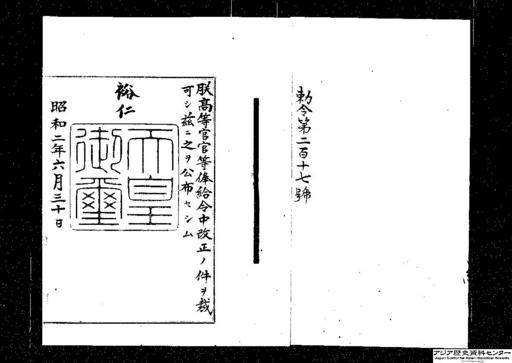 勅令第二百十七號
朕高等官官等俸給令中改正ノ件ヲ裁
可シ茲ニ之ヲ公布セシム
裕仁
天皇
御璽
昭和二年六月三十日
アジア歴史資料センター
Japan Center for Asian Historical Records